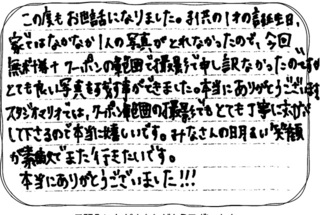 この度もお世話になりました。子供の1才の誕生日、
家ではなかなか1人の写真がとれなかったので、今回
無料 + クーポンの範囲で撮影で申し訳なかったのですが
とても良い写真を残す事ができました。本当にありがとうございます
スタジオマリオでは、クーポン範囲の撮影でもとても丁寧に
して下さるので本当に嬉しいです。みなさんの明るい笑顔
が素敵でまた行きたいです。
本当にありがとうございました!!!